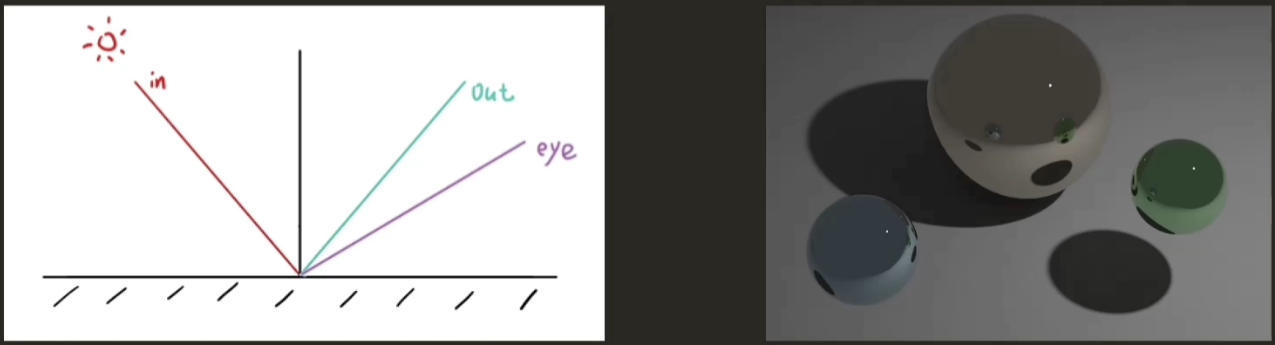 in
out
eye